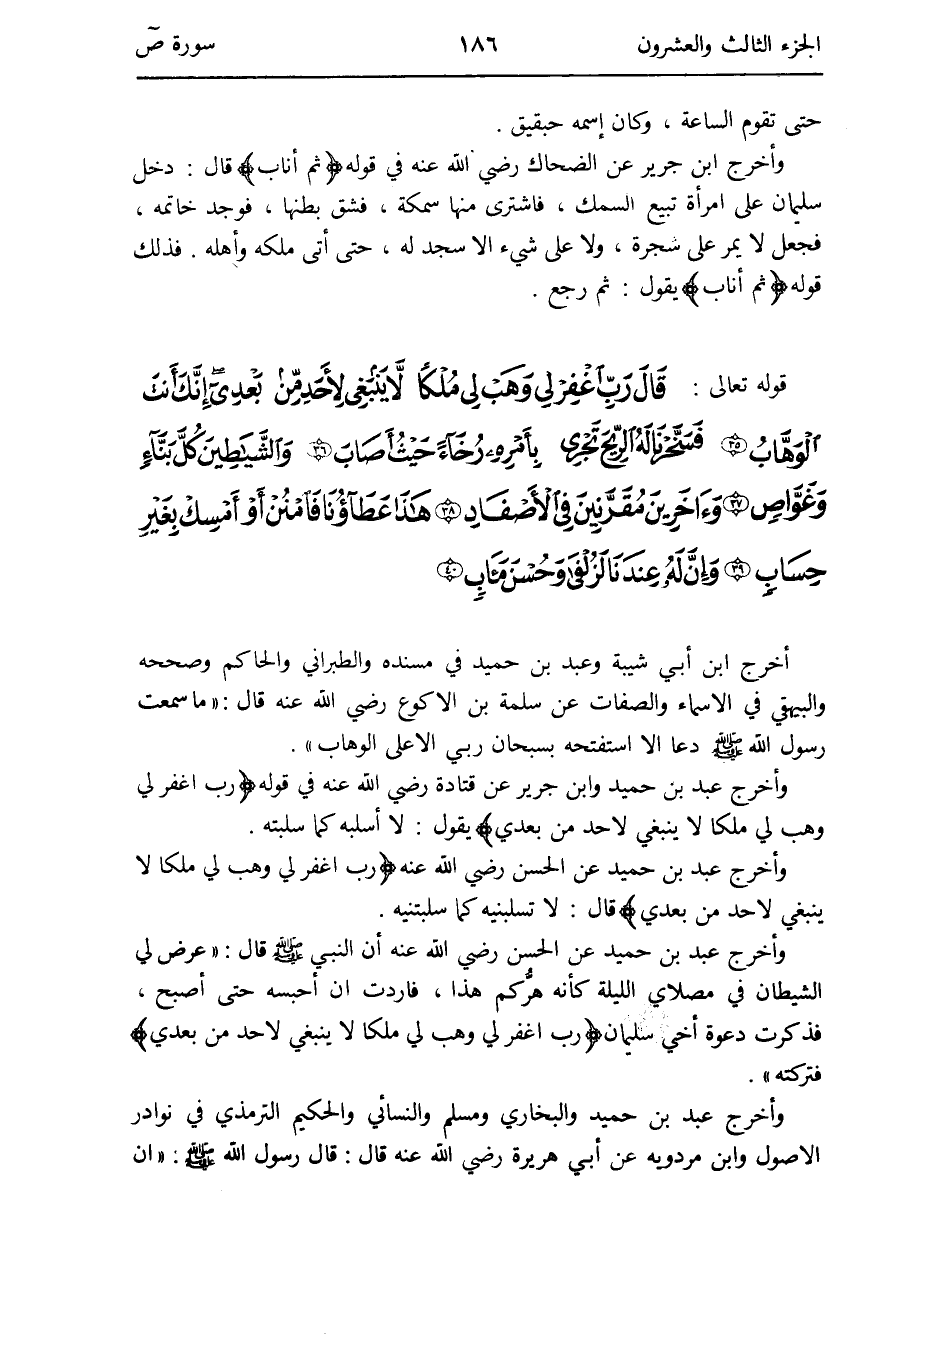 الجزء الثالث والعشرون ١٨٦ سورة صٓ
حتى تقوم الساعة ، وكان إسمه حبقيق .
وأخرج ابن جرير عن الضحاك رضي الله عنه في قوله ﴿ثم أناب﴾ قال : دخل
سليمان على امرأة تبيع السمك ، فاشترى منها سمكة ، فشق بطنها ، فوجد خاتمه ،
فجعل لا يمر على شجرة ، ولا على شيء الا سجد له ، حتى أتى ملكه وأهله . فذلك
قوله ﴿ثم أناب﴾ يقول : ثم رجع .
قوله تعالى : قَالَ رَبِّ ٱغْفِرْ لِي وَهَبْ لِي مُلْكًا لَّا يَنۢبَغِي لِأَحَدٍ مِّنۢ بَعْدِيٓ إِنَّكَ أَنتَ
ٱلْوَهَّابُ ۝٣٥ فَسَخَّرْنَا لَهُ ٱلرِّيحَ تَجْرِي بِأَمْرِهِۦ رُخَآءً حَيْثُ أَصَابَ ۝٣٦ وَٱلشَّيَٰطِينَ كُلَّ بَنَّآءٍ
وَغَوَّاصٍ ۝٣٧ وَءَاخَرِينَ مُقَرَّنِينَ فِي ٱلْأَصْفَادِ ۝٣٨ هَٰذَا عَطَآؤُنَا فَٱمْنُنْ أَوْ أَمْسِكْ بِغَيْرِ
حِسَابٍ ۝٣٩ وَإِنَّ لَهُۥ عِندَنَا لَزُلْفَىٰ وَحُسْنَ مَـَٔابٍ ۝٤٠
أخرج ابن أبي شيبة وعبد بن حميد في مسنده والطبراني والحاكم وصححه
والبيهقي في الاسماء والصفات عن سلمة بن الاكوع رضي الله عنه قال : « ما سمعت
رسول الله ﷺ دعا الا استفتحه بسبحان ربي الاعلى الوهاب » .
وأخرج عبد بن حميد وابن جرير عن قتادة رضي الله عنه في قوله ﴿رب اغفر لي
وهب لي ملكا لا ينبغي لاحد من بعدي﴾ يقول : لا أسلبه كما سلبته .
وأخرج عبد بن حميد عن الحسن رضي الله عنه ﴿رب اغفر لي وهب لي ملكا لا
ينبغي لاحد من بعدي﴾ قال : لا تسلبنيه كما سلبتنيه .
وأخرج عبد بن حميد عن الحسن رضي الله عنه أن النبي ﷺ قال : « عرض لي
الشيطان في مصلاي الليلة كأنه هرُّكم هذا ، فاردت ان أحبسه حتى أصبح ،
فذكرت دعوة أخي سليمان ﴿رب اغفر لي وهب لي ملكا لا ينبغي لاحد من بعدي﴾
فتركته » .
وأخرج عبد بن حميد والبخاري ومسلم والنسائي والحكيم الترمذي في نوادر
الاصول وابن مردويه عن أبي هريرة رضي الله عنه قال : قال رسول الله ﷺ : « ان